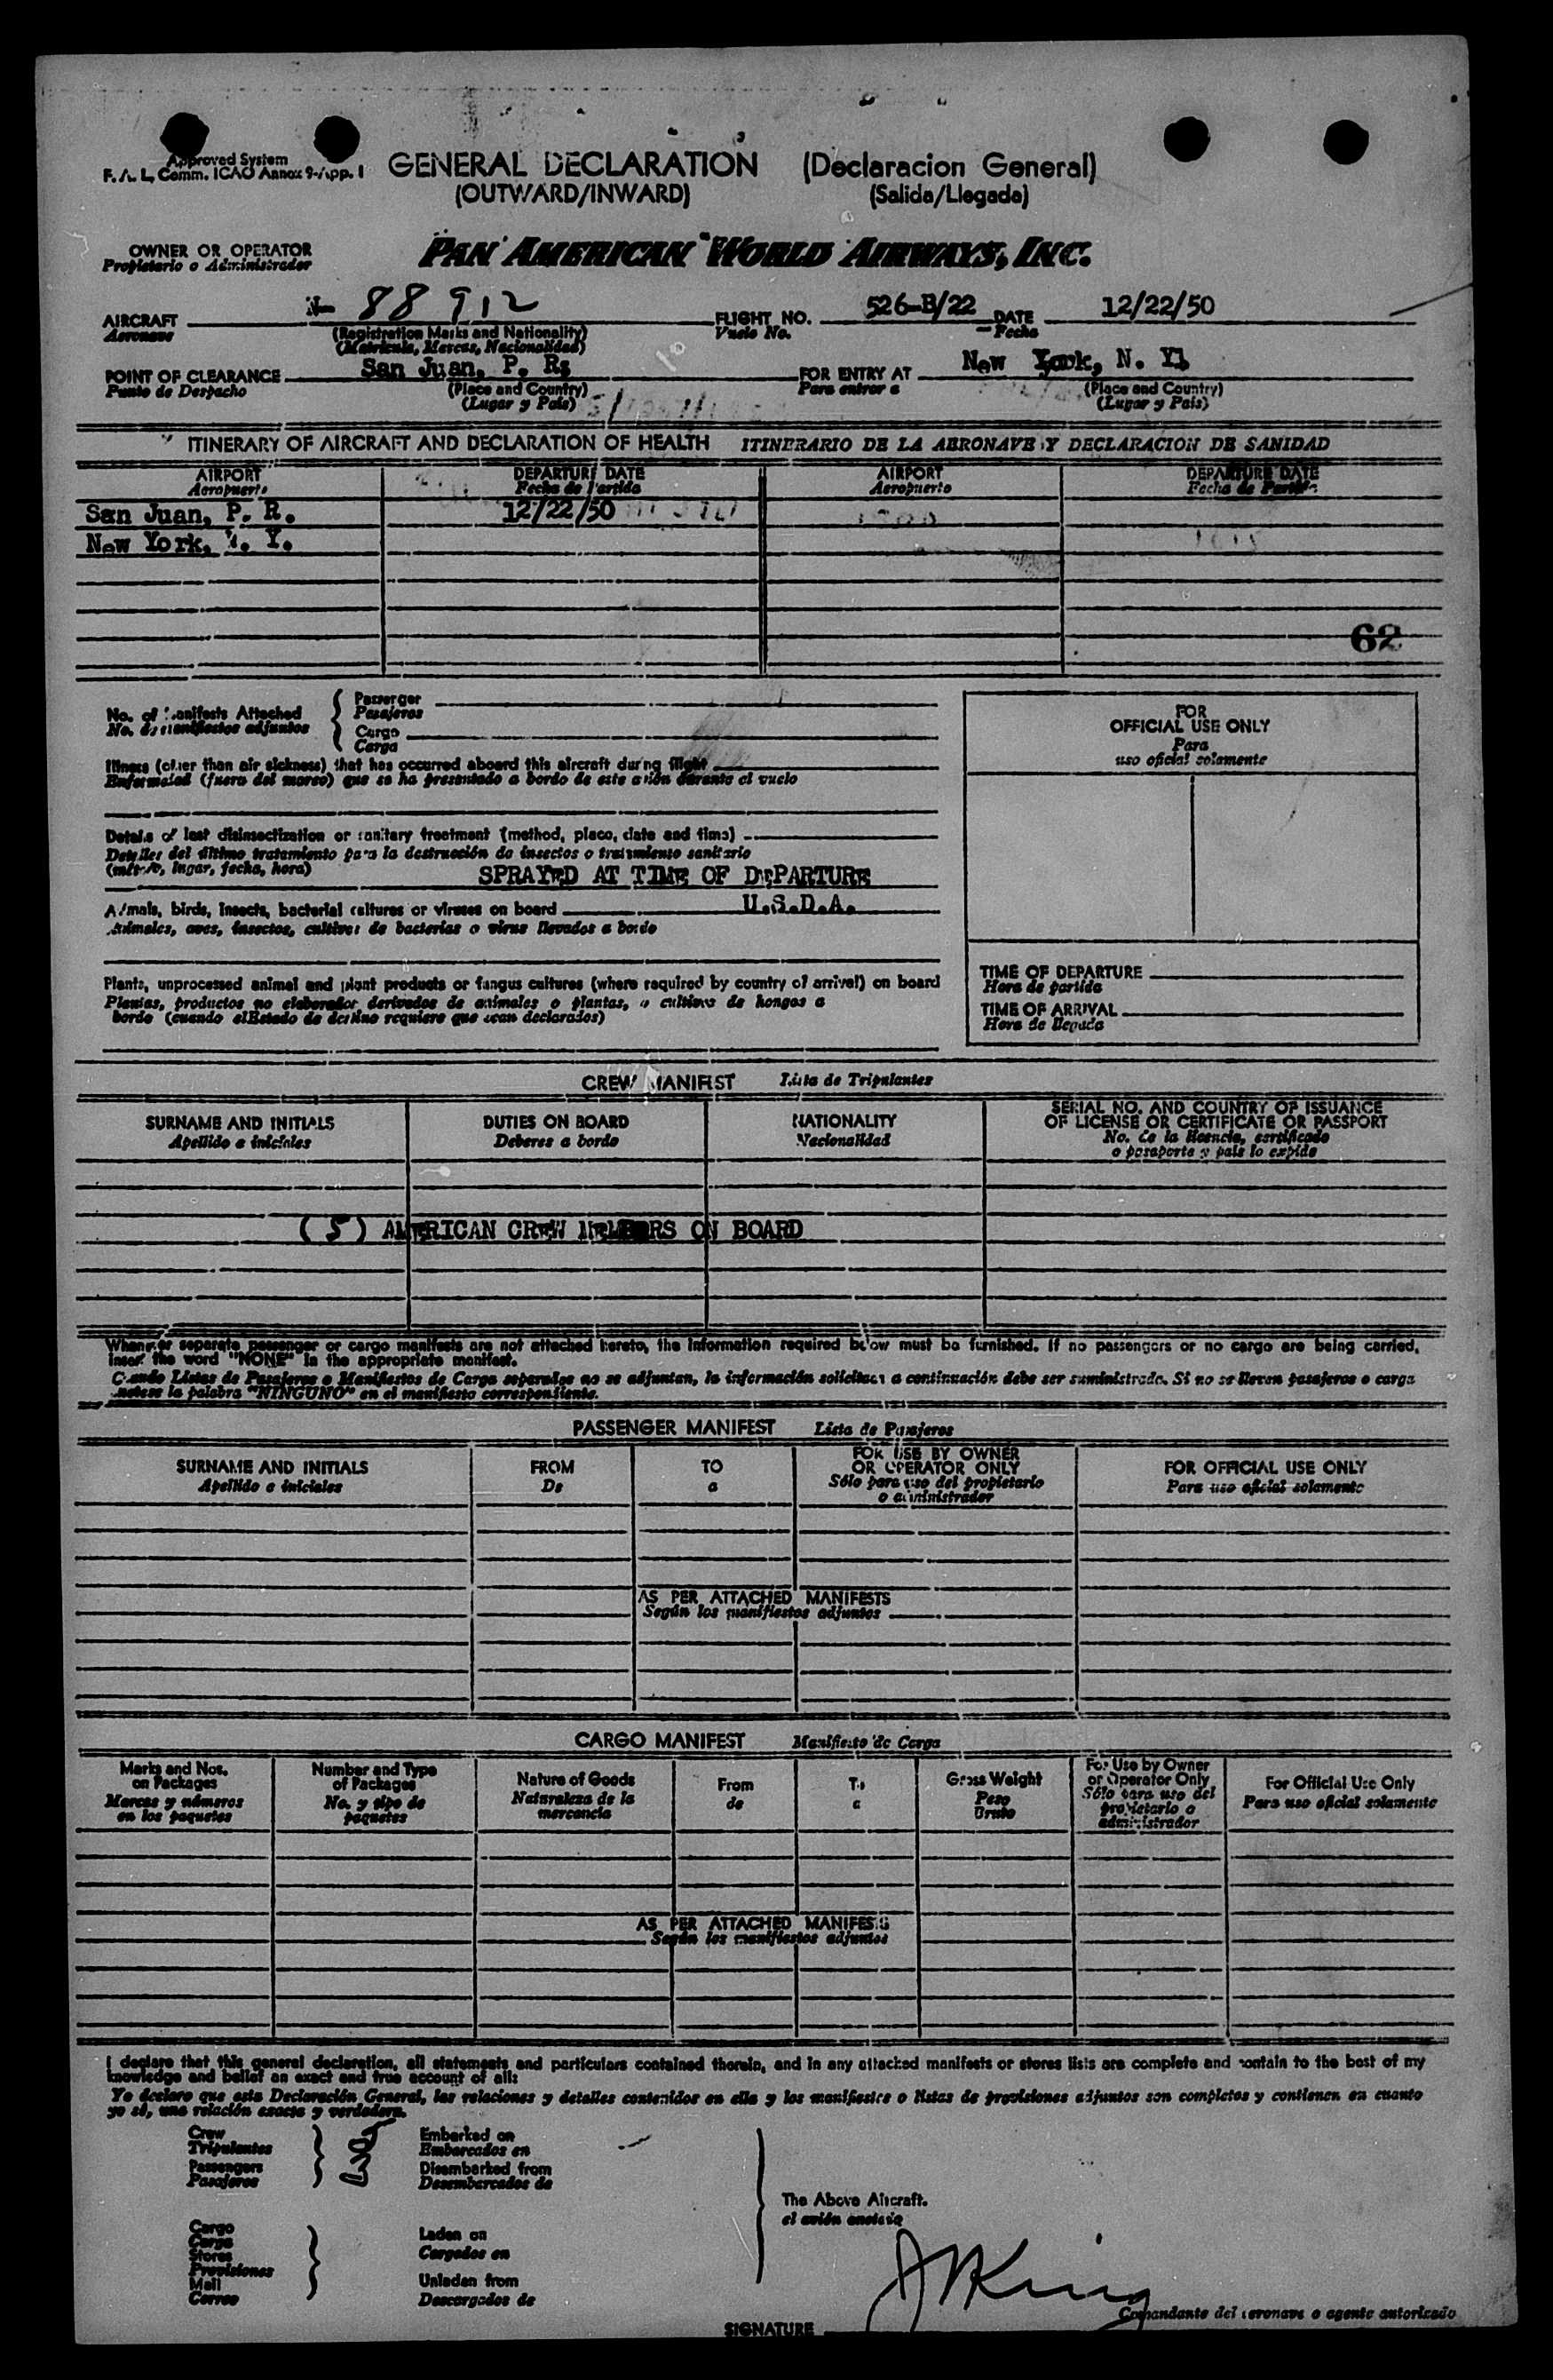 Approved System
F. A. L. Comm. ICAO Annex 9-App. I
GENERAL DECLARATION (Declaracion General)
(OUTWARD/INWARD) (Salida/Llegada)
OWNER OR OPERATOR
Propietario o Administrador
PAN AMERICAN WORLD AIRWAYS, INC.
AIRCRAFT N- 88912 FLIGHT NO. 526-B/22 DATE 12/22/50
Aeronave (Registration Marks and Nationality) Vuelo No. Fecha
(Matricula, Marcas, Nacionalidad)
POINT OF CLEARANCE San Juan, P. R. FOR ENTRY AT New York, N. Y.
Punto de Despacho (Place and Country) Para entrar a (Place and Country)
(Lugar y País) (Lugar y País)
ITINERARY OF AIRCRAFT AND DECLARATION OF HEALTH ITINERARIO DE LA AERONAVE Y DECLARACION DE SANIDAD
AIRPORT DEPARTURE DATE AIRPORT DEPARTURE DATE
Aeropuerto Fecha de Partida Aeropuerto Fecha de Partida
San Juan, P. R. 12/22/50
New York, N. Y.
62
No. of Manifests Attached
No. de manifiestos adjuntos
Passenger
Pasajeros
Cargo
Carga
Illness (other than air sickness) that has occurred aboard this aircraft during flight
Enfermedad (fuera del mareo) que se ha presentado a bordo de este avión durante el vuelo
Details of last disinsectization or sanitary treatment (method, place, date and time)
Detalles del último tratamiento para la destrucción de insectos o tratamiento sanitario
(método, lugar, fecha, hora)
SPRAYED AT TIME OF DEPARTURE
Animals, birds, insects, bacterial cultures or viruses on board U.S.D.A.
Animales, aves, insectos, cultivos de bacterias o virus llevados a bordo
Plants, unprocessed animal and plant products or fungus cultures (where required by country of arrival) on board
Plantas, productos no elaborados derivados de animales o plantas, o cultivos de hongos a
bordo (cuando el Estado de destino requiere que sean declarados)
FOR
OFFICIAL USE ONLY
Para
uso oficial solamente
TIME OF DEPARTURE
Hora de partida
TIME OF ARRIVAL
Hora de llegada
CREW MANIFEST Lista de Tripulantes
SURNAME AND INITIALS DUTIES ON BOARD NATIONALITY SERIAL NO. AND COUNTRY OF ISSUANCE
OF LICENSE OR CERTIFICATE OR PASSPORT
Apellido e iniciales Deberes a bordo Nacionalidad No. de la licencia, certificado
o pasaporte y país lo expide
(5) AMERICAN CREW MEMBERS ON BOARD
Whenever separate passenger or cargo manifests are not attached hereto, the information required below must be furnished. If no passengers or no cargo are being carried,
insert the word "NONE" in the appropriate manifest.
Cuando Listas de Pasajeros o Manifiestos de Carga separados no se adjuntan, la información solicitada a continuación debe ser suministrada. Si no se llevan pasajeros o carga
anotese la palabra "NINGUNO" en el manifiesto correspondiente.
PASSENGER MANIFEST Lista de Pasajeros
SURNAME AND INITIALS FROM TO FOR USE BY OWNER
OR OPERATOR ONLY FOR OFFICIAL USE ONLY
Apellido e iniciales De a Sólo para uso del propietario
o administrador Para uso oficial solamente
AS PER ATTACHED MANIFESTS
Según los manifiestos adjuntos
CARGO MANIFEST Manifiesto de Carga
Marks and Nos.
on Packages
Marcas y números
en los paquetes
Number and Type
of Packages
No. y tipo de
paquetes
Nature of Goods
Naturaleza de la
mercancía
From
de
To
a
Gross Weight
Peso
Bruto
For Use by Owner
or Operator Only
Sólo para uso del
propietario o
administrador
For Official Use Only
Para uso oficial solamente
AS PER ATTACHED MANIFESTS
Según los manifiestos adjuntos
I declare that this general declaration, all statements and particulars contained therein, and in any attached manifests or stores lists are complete and contain to the best of my
knowledge and belief an exact and true account of all:
Yo declaro que esta Declaración General, las relaciones y detalles contenidos en ella y los manifiestos o listas de provisiones adjuntos son completos y contienen en cuanto
yo sé, una relación exacta y verdadera.
Crew
Tripulantes
Passengers
Pasajeros
Embarked on
Embarcados en
Disembarked from
Desembarcados de
The Above Aircraft.
Cargo
Carga
Stores
Provisiones
Mail
Correo
Laden on
Cargados en
Unladen from
Descargados de
SIGNATURE
Comandante del aeronave o agente autorizado